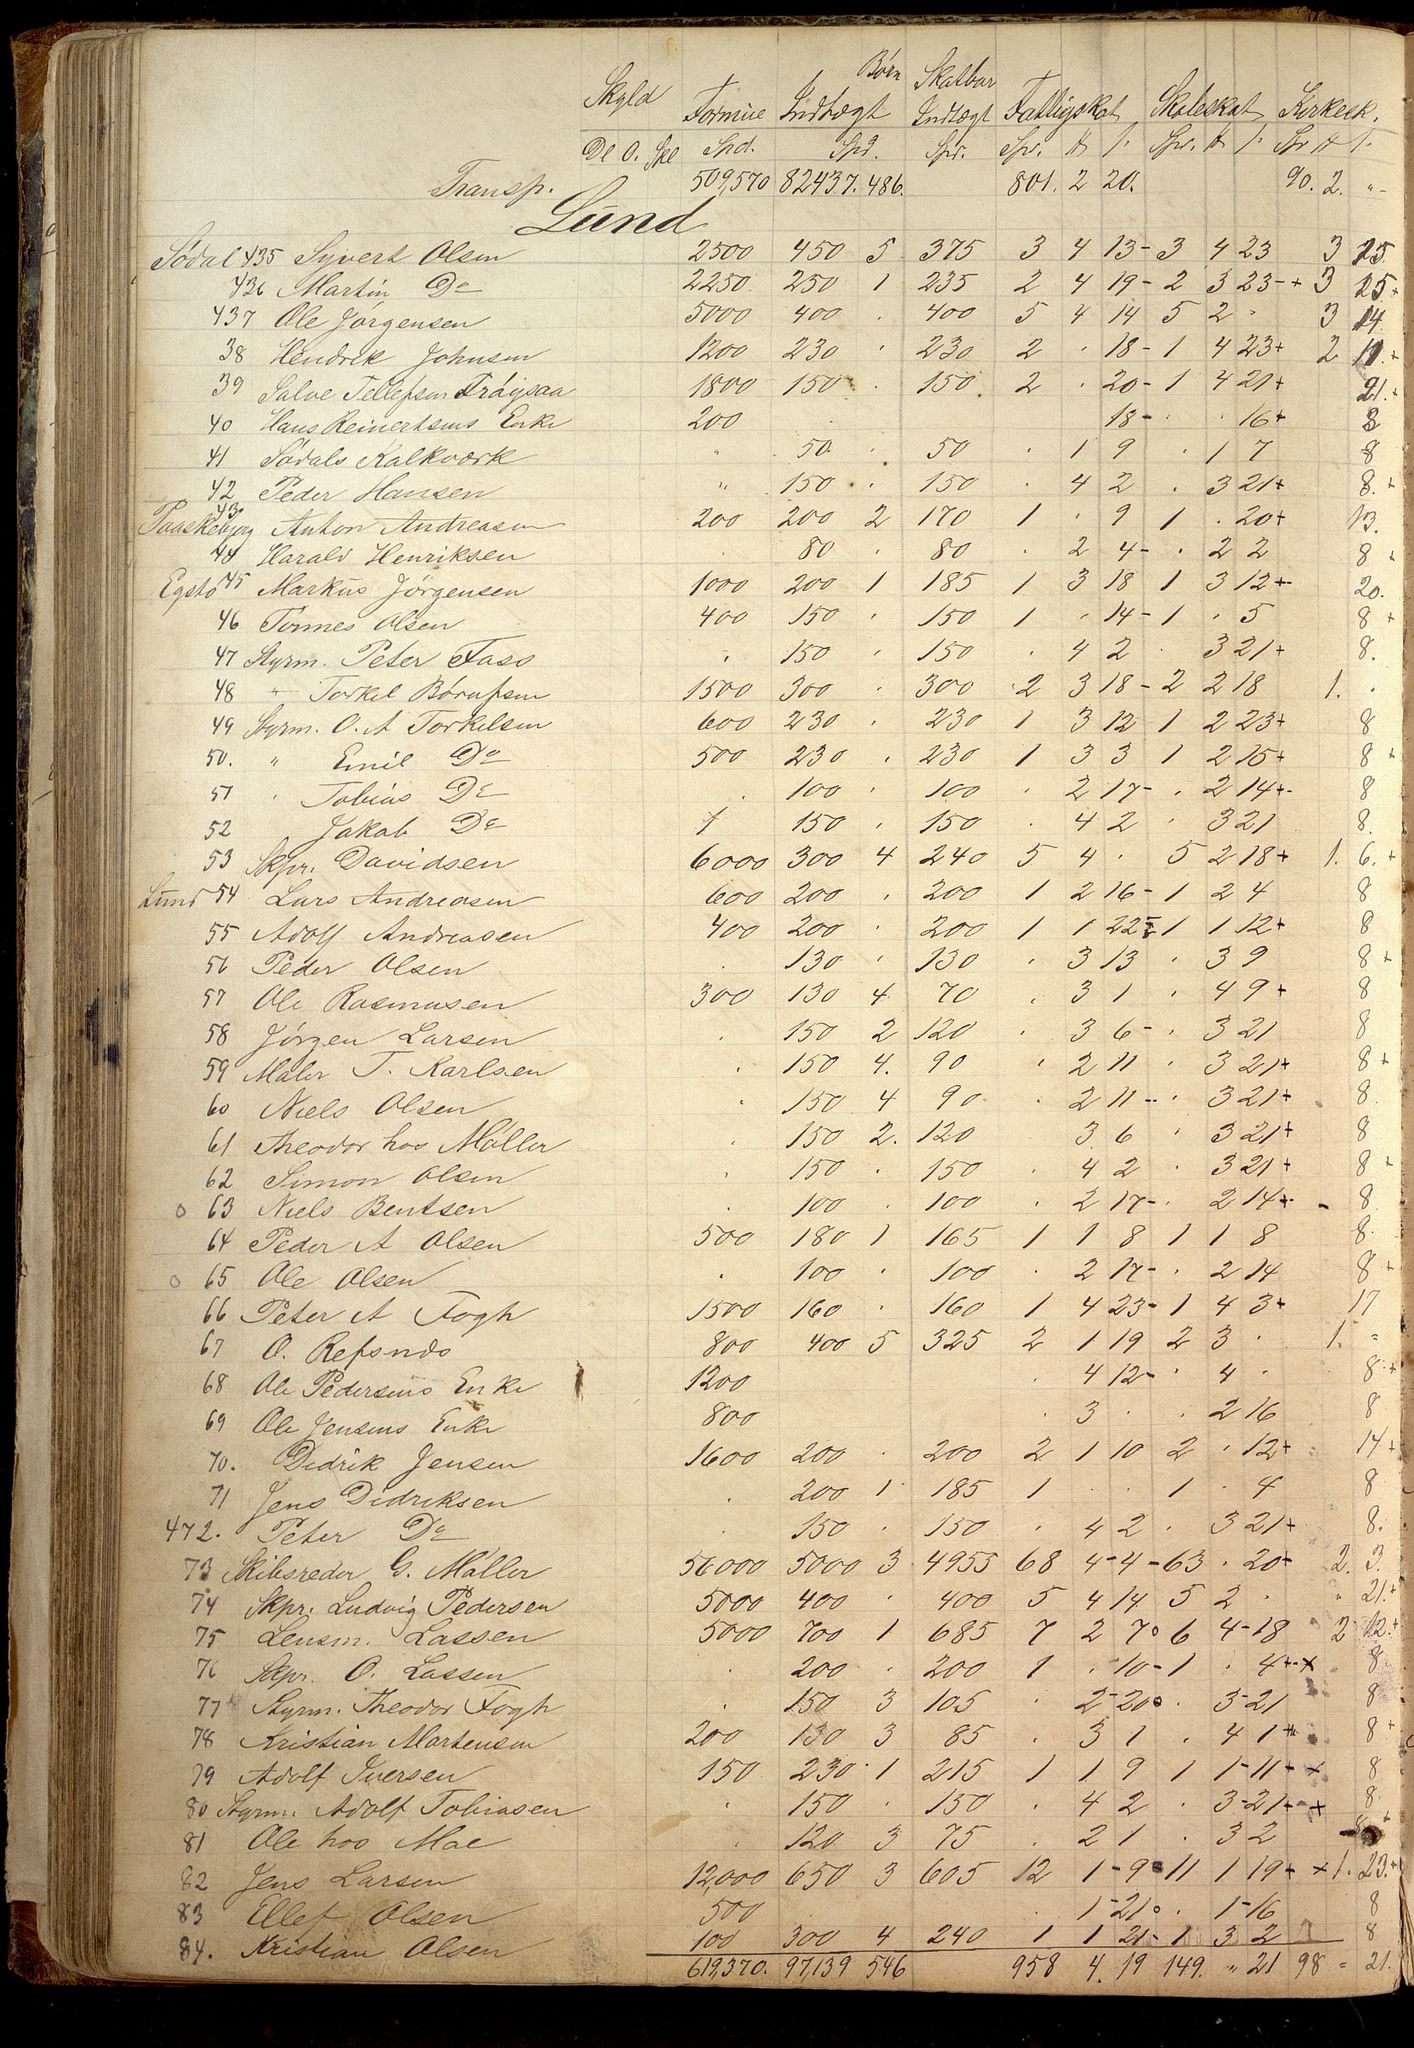 Skyld Formue Indtægt Børn Skatbar Indtægt Fattigskat Skoleskat Kirkesk.
Dl. O. Skl Spd. Spd. Spr. Spr. # /. Spr. # /. Spr # /.
Transp. 509,570 82437. 486. 801. 2 20. 90. 2. "
Lund
Sødal 435 Syvert Olsen 2500 450 5 375 3 4 13- 3 4 23 3 15.
436 Martin Do 2250. 250 1 235 2 4 19- 2 3 23-+ 3 25+
437 Ole Jørgensen 5000 400 . 400 5 4 14 5 2 . 3 14.
38 Hendrik Johnsen 1200 230 . 230 2 . 18- 1 4 23+ 2 11.+
39 Salve Tellefsen Frøysaa 1800 150 . 150 2 . 20- 1 4 21+ 21.+
40 Hans Reinertsens Enke 200 18- . . 16+ 8
41 Sødals Kalkværk " 50. . 50 . 1 9 . 1 7 8
42 Peder Hansen " 150 . 150 . 4 2 . 3 21+ 8.+
43 Paaskebjerg Anton Andreasen 200 200 2 170 1 . 9 1 . 20+ 13.
44 Harald Henriksen . 80 . 80 . 2 4- . 2 2 8+
Egstø 45 Markus Jørgensen 1000 200 1 185 1 3 18 1 3 12+ 20.
46 Tønnes Olsen 400 150 . 150 1 . 14- 1 . 5 8+
47 Styrm. Peter Faso . 150 . 150 . 4 2 . 3 21+ 8.
48 " Torkel Børufsen 1500 300 . 300 . 2 3 18- 2 2 18 1. .
49 Styrm. O. A Torkelsen 600 230 . 230 1 3 12- 1 2 23+ 8
50. " Emil Do 500 230 . 230 1 3 3 1 2 15+ 8+
51 " Tobias Do . 100 . 100 . 2 17- . 2 14+- 8
52 Jakob Do 1 150 . 150 . 4 2 . 3 21 8.
53 Skpr. Davidsen 6000 300 4 240 5 4 . 5 2 18+ 1. 6.+
Lund 54 Lars Andreasen 600 200 . 200 1 2 16- 1 2 4 8
55 Adolf Andreasen 400 200 . 200 1 1 22- 1 1 12+ 8
56 Peder Olsen . 130 . 130 . 3 13 . 3 9 8+
57 Ole Rasmusen 300 130 4 70 . 3 1 . 4 9+ 8
58 Jørgen Larsen . 150 2 120 . 3 6- . 3 21 8
59 Maler T. Karlsen . 150 4. 90 . 2 11 . 3 21+ 8+
60 Niels Olsen . 150 4 90 . 2 11- . 3 21+ 8
61 Theodor hos Møller . 150 2. 120 3 6 . 3 21+ 8
62 Simon Olsen . 150 . 150 . 4 2 . 3 21+ 8+
o 63 Niels Bentsen . 100 . 100 . 2 17- . 2 14+- - 8
64 Peder A Olsen 500 180 1 165 1 1 8 1 1 8 8.
o 65 Ole Olsen . 100 . 100 . 2 17- . 2 14 8+
66 Peter A Fogh 1500 160 . 160 1 4 23- 1 4 3+ 17
67 O. Refsnds 800 400 5 325 2 1 19 2 3 . 1. "
68 Ole Pedersens Enke 1200 . 4 12- . 4 . 8+
69 Ole Jensens Enke 800 . 3 . . 2 16 8
70. Didrik Jensen 1600 200 . 200 2 1 10 2 . 12+ 14+
71 Jens Didriksen . 200 1 185 1 . . 1 . 4 8
472. Peter Do . 150 . 150 . 4 2 . 3 21+ 8.
73 Skibsreder G. Møller 56000 5000 3 4955 68 4-4- 63 . 20- 2. 3.
74 Skpr. Ludvig Pedersen 5000 400 . 400 5 4 14 5 2 . " 21.+
75 Lensm. Lassen 5000 700 1 685 7 2 7o 6 4-18 2 12.+
76 Skpr. O. Lassen . 200 . 200 1 . 10- 1 . 4+-x 8
77 Styrm. Theodor Fogh . 150 3 105 . 2-20o . 3-21 8
78 Kristian Mortensen 200 130 3 85 . 3 1 . 4 1+ 8+
79 Adolf Iversen 150 230 1 215 1 1 9 1 1-11-+x 8
80 Styrm. Adolf Tobiasen . 150 . 150 . 4 2 . 3-21-+x 8.
81 Ole hos Moe . 120 3 75 . 2 1 . 3 2 8+
82 Jens Larsen 12,000 650 3 605 12 1-9 11 1 19+ x1. 23.+
83 Ellef Olsen 500 . 1-21o . 1-16 8
84. Kristian Olsen 100 300 4 240 1 1 21- 1 3 2 8
619,370. 97,139 546 958 4. 19 149. " 21 98 " 21.